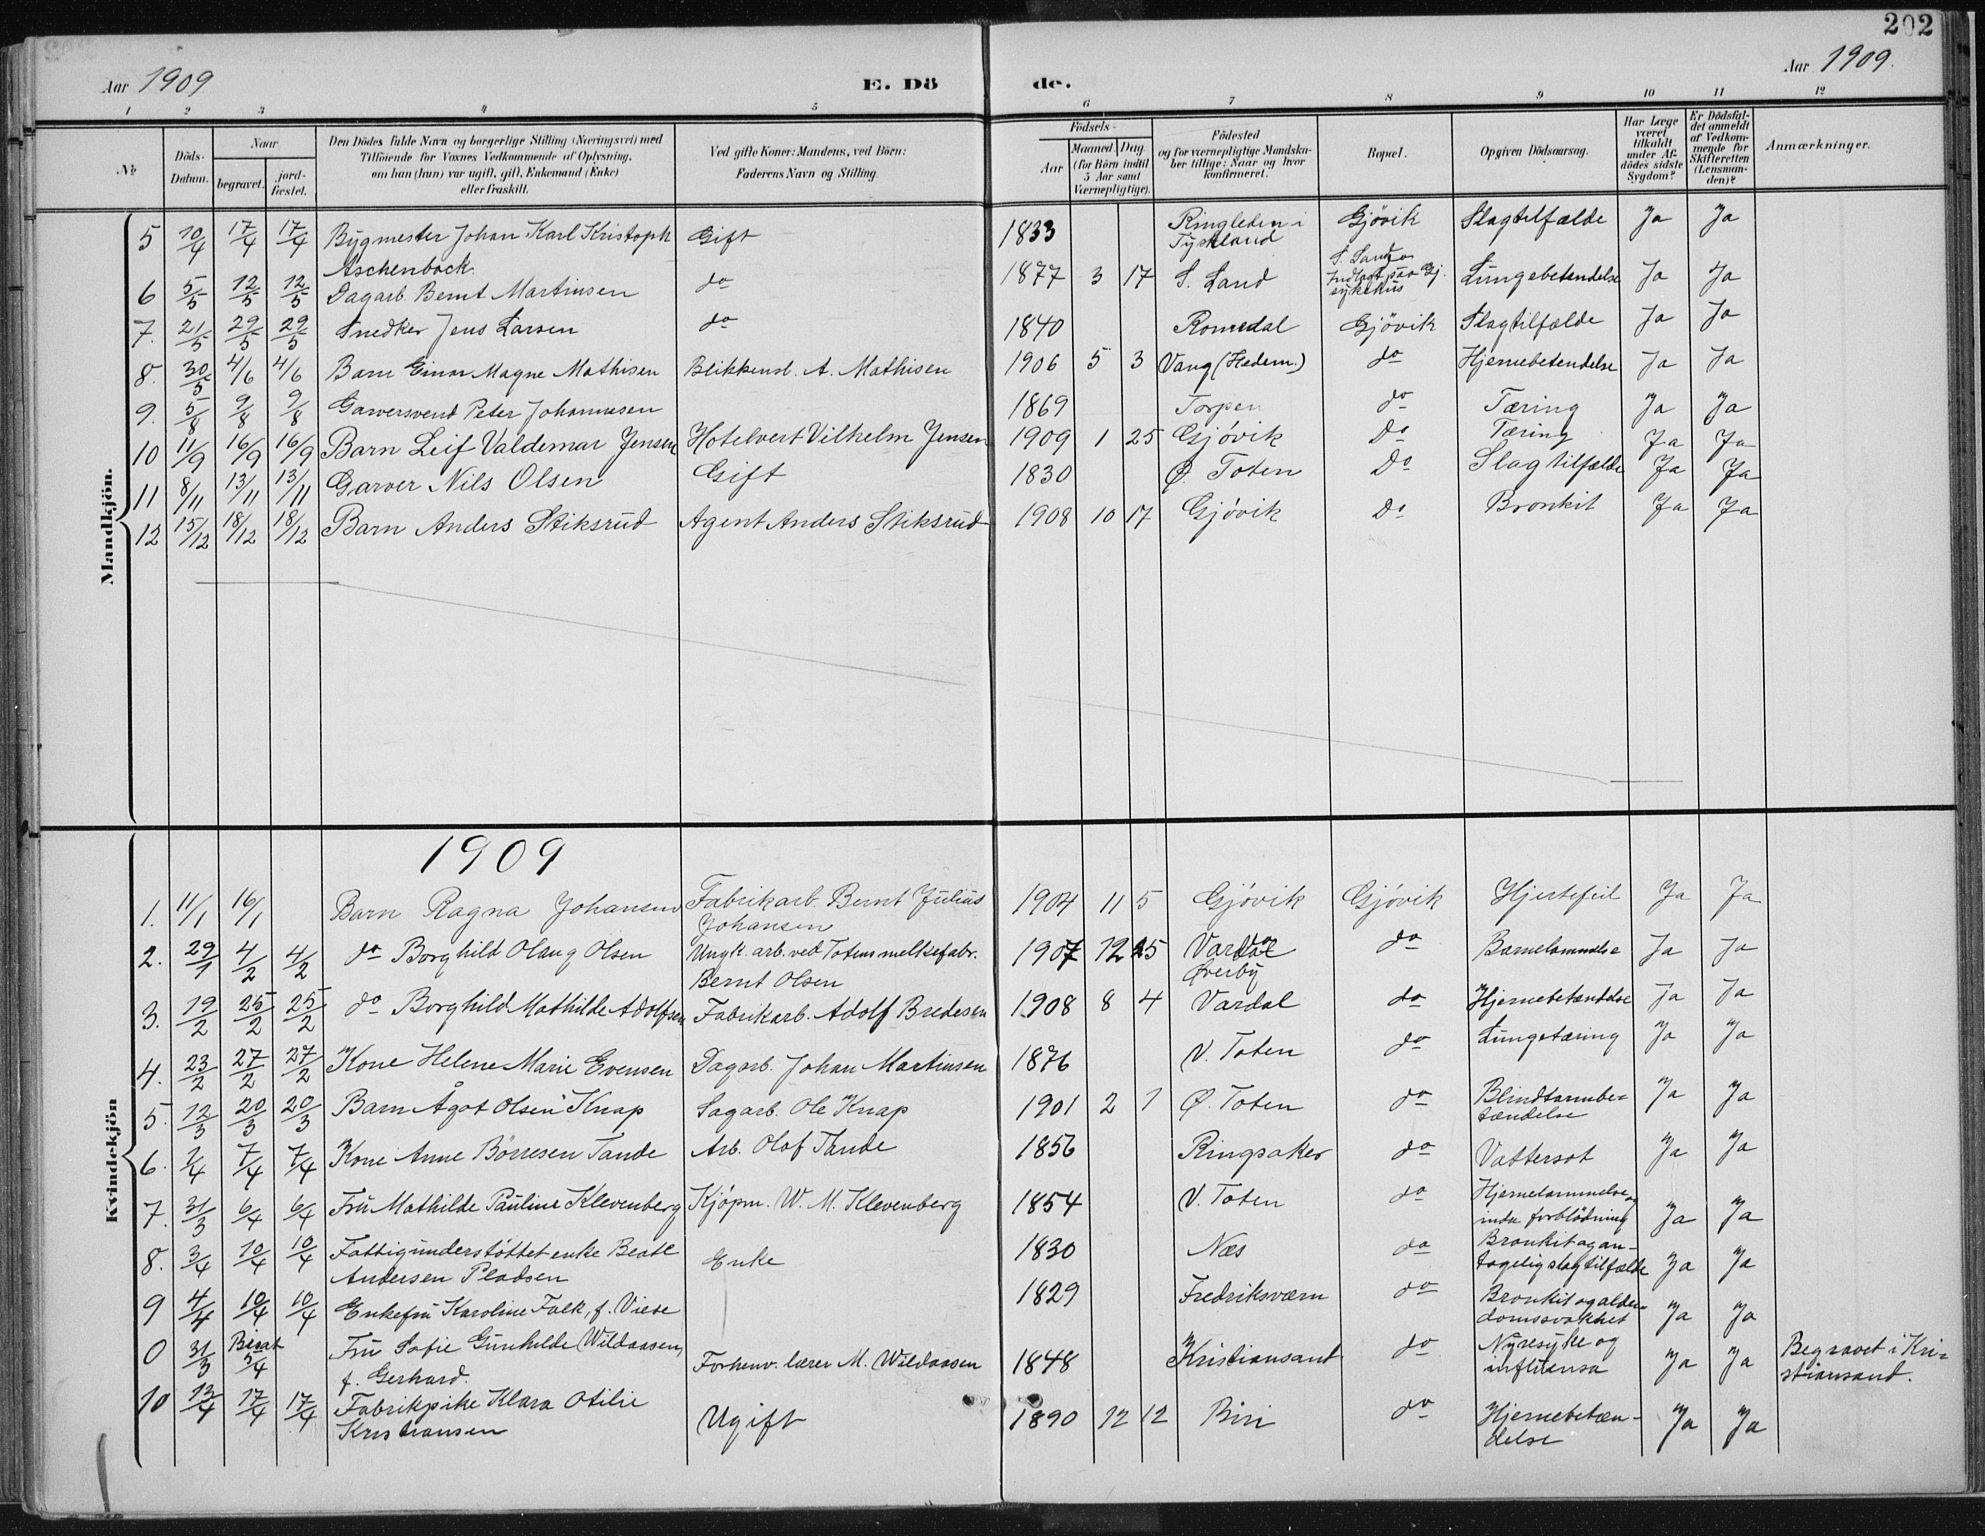 202
Aar 1909
E. Dö de.
Aar 1909.
1 2 3 4 5 6 7 8 9 10 11 12
No
Döds-Datum.
Naar
begravet. jordfæstet.
Den Dödes fulde Navn og borgerlige Stilling (Næringsvei) med
Tilföiende for Voxnes Vedkommende af Oplysning,
om han (hun) var ugift, gift, Enkemand (Enke)
eller fraskilt.
Ved gifte Koner: Mandens, ved Börn:
Faderens Navn og Stilling.
Födsels-
Aar
Maaned Dag.
(for Börn indtil
5 Aar samt
Værnepligtige).
Födested
og for værnepligtige Mandskaber tillige: Naar og hvor
konfirmeret.
Bopæl.
Opgiven Dödsaarsag.
Har Læge
været
tilkaldt
under Afdödes sidste
Sygdom?
Er Dödsfaldet anmeldt
af Vedkommende for
Skifteretten
(Lensmanden)?
Anmærkninger.
Mandkjön.
5 10/4 17/4 17/4 Bygmester Johan Karl Kristoph Aschenbach. Gift 1833 Ringleden i Tyskland Gjövik Slagtilfælde Ja Ja
6 5/5 12/5 12/5 Dagarb. Bernt Martinsen do 1877 3 17 S. Land S. Land Indlagt paa Gj. sykehus Lungebetendelse Ja Ja
7. 21/5 29/5 29/5 Snedker Jens Larsen do 1840 Romedal Gjövik Slagtilfælde Ja Ja
8. 30/5 4/6 4/6 Barn Einar Magne Mathisen Blikkensl. A. Mathisen 1906 5 3 Vang (Hedem.) do Hjernebetendelse Ja Ja
9. 5/8 9/8 9/8 Garversvend Peter Johannesen 1869 Torpen do Tæring Ja Ja
10 11/9 16/9 16/9 Barn Leif Valdemar Jensen Hotelvert Vilhelm Jensen 1909 1 25 Gjövik Do Tæring Ja Ja
11 8/11 13/11 13/11 Garver Nils Olsen Gift 1830 Ø. Toten Do Slagtilfælde Ja Ja
12 15/12 18/12 18/12 Barn Anders Stiksrud Agent Anders Stiksrud 1908 10 17 Gjövik Do Bronkit Ja Ja
Kvindekjön
1909
1. 11/1 16/1 Barn Ragna Johansen Fabrikarb. Bernt Julius Johansen 1904 11 5 Gjövik Gjövik Hjertefeil Ja Ja
2. 29/1 4/2 4/2 do Borghild Olaug Olsen Ungk. arb. ved Totens melkefabr. Bernt Olsen 1907 12 25 Vardal Øverby do Barnelammelse Ja Ja
3. 19/2 25/2 25/2 do Borghild Mathilde Adolfsen Fabrikarb. Adolf Bredesen 1908 8 4 Vardal do Hjernebetændelse Ja Ja
4. 23/2 27/2 27/2 Kone Helene Marie Evensen Dagarb. Johan Martinsen 1876 V. Toten do Lungetæring Ja Ja
5. 12/3 20/3 20/3 Barn Ågot Olsen Knap Sagarb. Ole Knap 1901 2 1 Ø. Toten do Blindtarmbetændelse Ja Ja
6. 2/4 7/4 7/4 Kone Anne Börresen Tande Arb. Olaf Tande 1856 Ringsaker do Vattersot Ja Ja
7. 31/3 6/4 6/4 Fru Mathilde Pauline Klevenberg Kjöpm. W. M. Klevenberg 1854 V. Toten do Hjernelammelse og indre forblödning Ja Ja
8. 3/4 10/4 10/4 Fattigunderstöttet enke Beate Andersen Pladsen Enke 1830 Næs do Bronkit og antagelig slagtilfælde Ja Ja
9 4/4 10/4 10/4 Enkefru Karoline Falk, f. Viese 1829 Fredriksværn do Bronkit og alderdomssvakhet Ja Ja
0 31/3 Bisat 5/4 Fru Sofie Gunhilde Wildaasen, f. Gerhard. Forhenv. lærer M. Wildaasen 1848 Kristiansand do Nyresyke og influensa Ja Ja Begravet i Kristiansand.
10 13/4 17/4 17/4 Fabrikpike Klara Otilie Kristiansen Ugift 1890 12 12 Biri do Hjernebetændelse Ja Ja